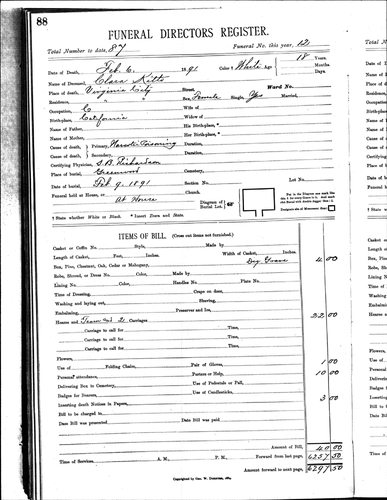 88
FUNERAL DIRECTORS REGISTER.
Total Number to date, 87 Funeral No. this year, 12
Date of Death, Feb. 6, 1891 Color † White Age 18 Years. Months. Days.
Name of Deceased, Clara Kitts
Place of death, Virginia City Street. Ward No.
Residence, " " Sex, Female Single, Yes Married,
Occupation, Wife of
Birth-place, California Widow of
Name of Father, His Birth-place,*
Name of Mother, Her Birth-place,
Cause of death, Primary, Narcotic Poisoning Duration,
Cause of death, Secondary, Duration,
Certifying Physician, Richardson
Place of burial, Greenwood Cemetery,
Date of burial, Feb 9. 1891 Section No.
Funeral held at House, or Church.
At House Diagram of Burial Lot.
† State whether White or Black. * Insert Town and State.
ITEMS OF BILL. (Cross out items not furnished.)
Casket or Coffin No. Style, Made by
Length of Casket, Feet, Inches. Width of Casket, Inches.
Box, Pine, Chestnut, Oak, Cedar or Mahogany, Dig Grave 4 00
Robe, Shroud, or Dress No. Color, Made by
Lining No. Color, Handles No. Plate No.
Time of Dressing, Crape on door,
Washing and laying out, Shaving,
Embalming, Preserver and Ice,
Hearse and Team and 2 Carriages 22 00
Carriage to call for Time,
Carriage to call for Time,
Carriage to call for Time,
Flowers,
Use of Folding Chairs, Pair of Gloves, 1 00
Personal attendance, Porters or Help, 10 00
Delivering Box to Cemetery, Use of Pedestals or Pall,
Badges for Bearers, Use of Candlesticks,
Inserting death Notices in Papers, 3 00
Bill to be charged to
Date Bill was presented Date Bill was paid
Amount of Bill, 40 00
Time of Services A. M., P. M. Forward from last page, 4257 50
Amount forward to next page, 4297 50